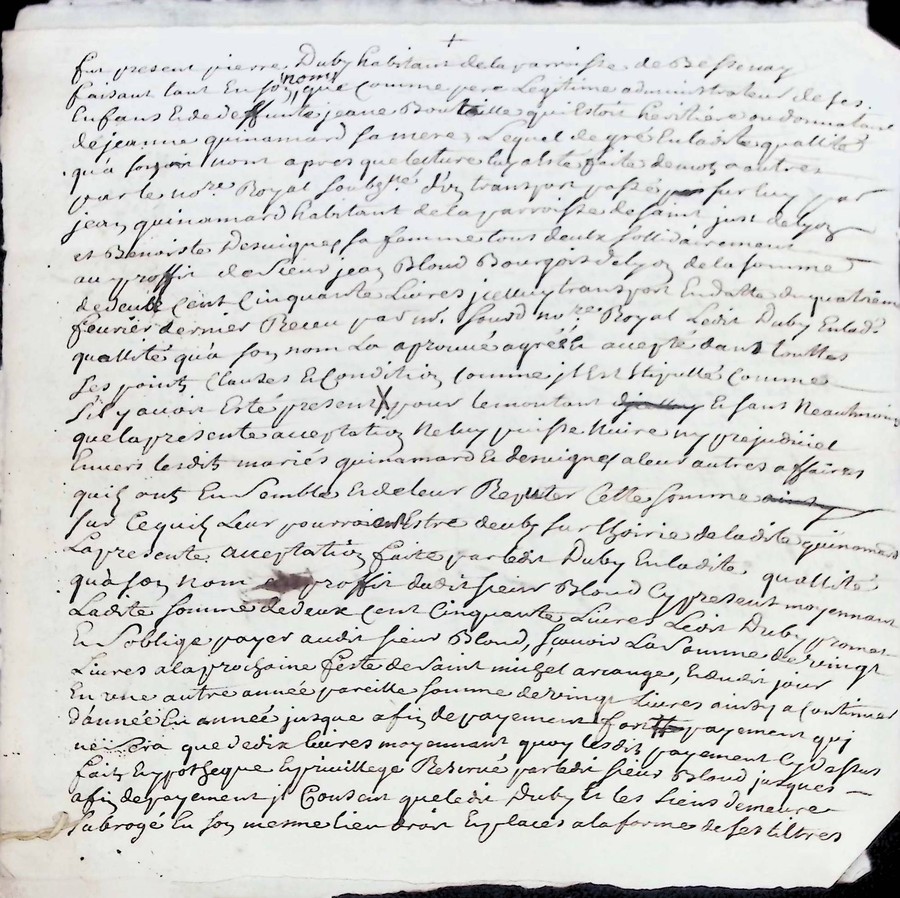 +
fut present pierre Duby habitant de la parroisse de Bessenay
faisant tant En son nom que comme pere Legitime administrateur de ses
Enfans Et de deffunte jeane Bouteille quiEstoit héritière ou donnatare
de jeanne quinamard sa mere, Lequel de gré En ladite quallité
qu'a son nom apres que lecture luy a esté faite de mot a autres
par le nore Royal soubsné d'un transport passé sur luy par
jean quinamard habitant de la parroisse de saint just de lyon
et Benoiste Desvignes sa femme tous deulx sollidairement
au proffit de sieur jean Bloud Bourgois de lyon de la somme
de deulx cent Cinquante Livres jcelluy transport En datte du quatriem
feuvrier dernier Receu par me. nore Royal Ledit Duby En lade
quallité qu'a son nom La aprouué agréé Et accepté dans touttes
ses points Clauses Et Condition comme jl Est stipullé comme
s'il y avoit Esté present X pour le montant Et sans Neautmoins
que la presente acceptation Ne luy puisse Nuire ny prejudicier
Envers lesdits mariés quinamard Et desvignes a leur autres affaires
quils ont En semble Et de leur Reputer Cette somme
sur Cequil Leur pourroit Estre deub sur lhoirie de ladite quinamard
La presente acceptation faite par ledit Duby En ladite quallité
qu'a son nom au proffit dudit sieur Bloud Cy present moyennant
Ladite somme de deux cent Cinquante Livres Ledit Duby promet
Et s'oblige payer audit sieur Bloud, sçavoir La somme de vingt
Livres a la prochaine feste de saint michel arcange, Et dudit jour
En une autre année pareille somme de vingt Livres ainsy a Continuer
d'année En année jusque a fin de payement fort payement quj
ne sera que de dix livres moyennant quoy lesdits payement Cy dessus
faits Eypotheque Et privillege Reservé par ledit sieur Bloud jusques
a fin de payement jl Consent que ledit Duby Et les siens demeure
subrogé En son mesme lieu droit Et places a la forme de ses tiltres